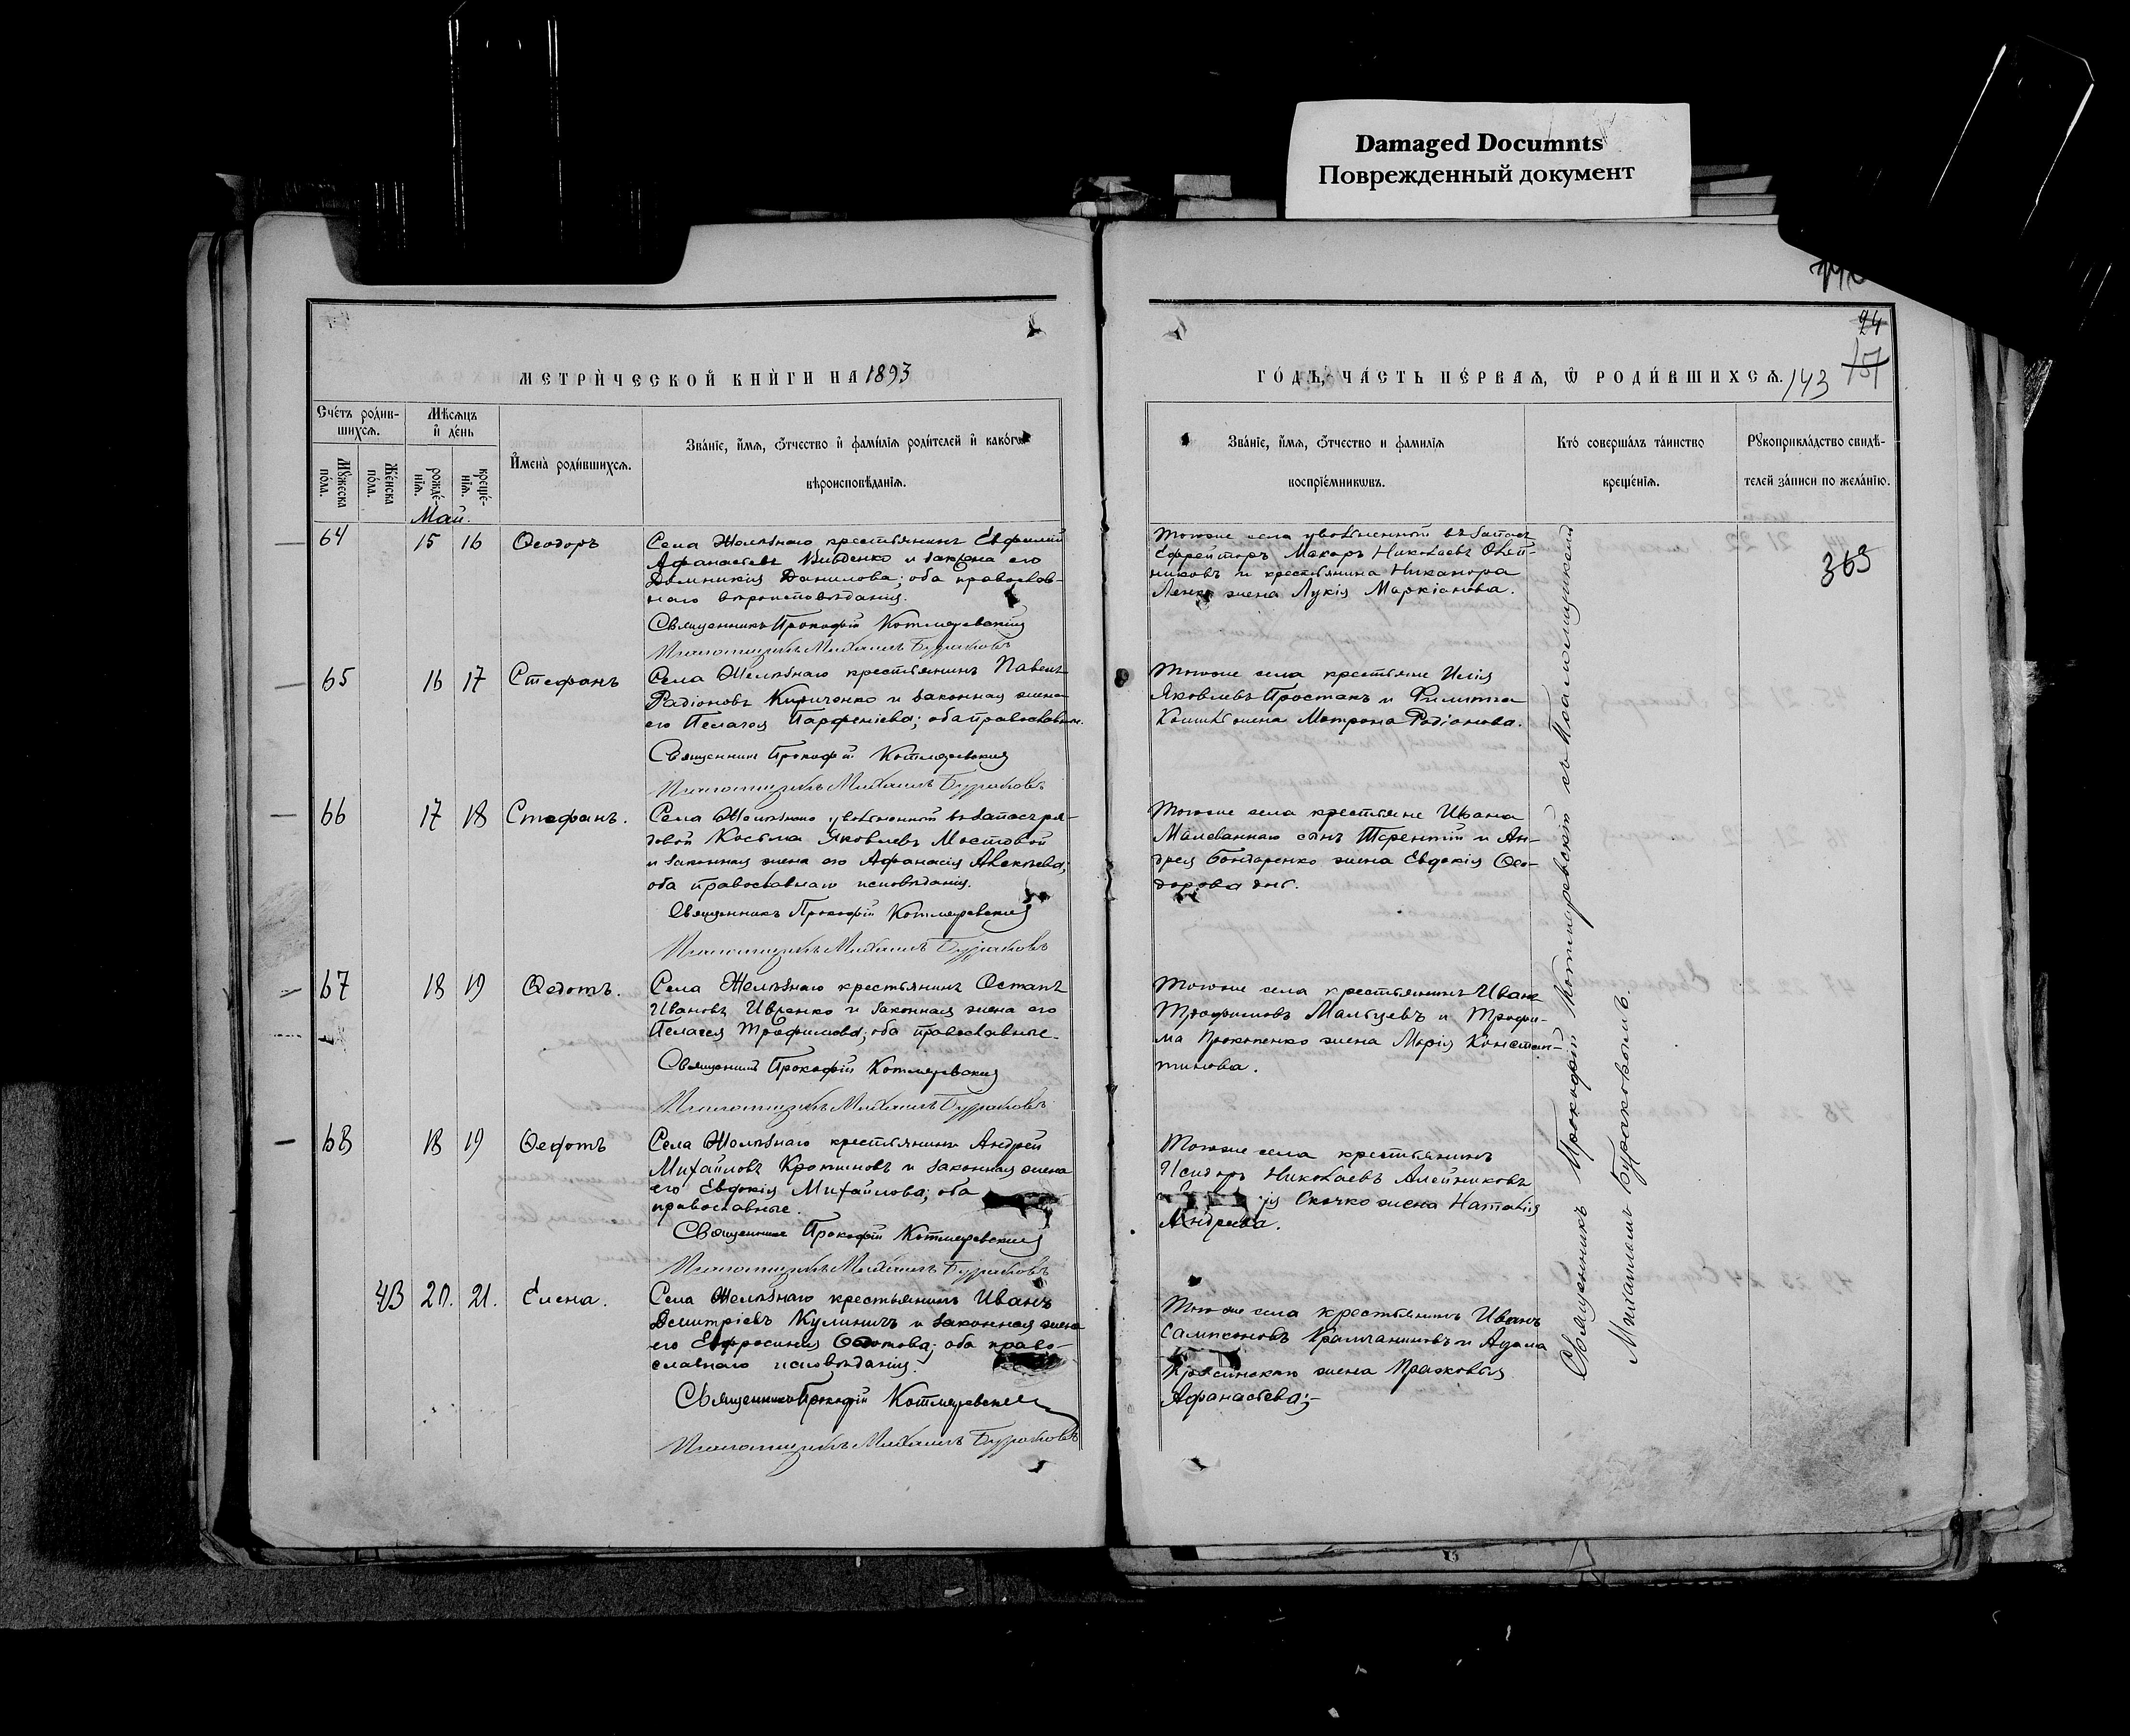 Damaged Documnts
Поврежденный документ
24
151
143
МЕТРИ́ЧЕСКОЙ КНИ́ГИ НА 1893
ГО́ДЪ, ЧА́СТЬ ПЕ́РВАѦ, Ѿ РОДИ́ВШИХСѦ.
Сче́тъ роди́в-
шихсѧ.
Мꙋ́жеска по́ла.
Же́нска по́ла.
Мѣ́сѧцъ
и҆ де́нь
рожде́-
нїѧ.
креще́-
нїѧ.
И҆мена̀ роди́вшихсѧ.
Зва́нїе, и҆́мѧ, ѻ҆́тчество и҆ фами́лїѧ роди́телей и҆ како́гѡ
вѣроисповѣ́данїѧ.
Зва́нїе, и҆́мѧ, ѻ҆́тчество и фами́лїѧ
воспрїе́мникѡвъ.
Кто̀ соверша́лъ та́инство
креще́нїѧ.
Рꙋкоприкла́дство свидѣ́-
телей за́писи по жела́нїю.
Май.
64 15 16 Ѳеодоръ
Села Желѣзнаго крестьянинъ Евфимій
Афанасьевъ и законна его
Домникія Данилова; оба православ-
наго вѣроисповѣданія.
Священникъ Прокофій Котляревскій
Псаломщикъ Михаилъ Бураковъ
Тогоже села уволенный въ запасъ
Ефрейторъ Макаръ Николаевъ Олей-
никовъ и крестьянина Никанора
жена Лукія Маркіанова.
363
65 16 17 Стефанъ
Села Желѣзнаго крестьянинъ Павелъ
Радіоновъ Кириченко и законная жена
его Пелагея Парфеніева; оба православн.
Священникъ Прокофій Котляревскій
Псаломщикъ Михаилъ Бураковъ
Тогоже села крестьяне Илія
Яковлевъ Простакъ и Филиппа
жена Матрона Родіонова.
66 17 18 Стефанъ.
Села Желѣзнаго уволенный въ запасъ ря-
довой Косьма Яковлевъ Мостовой
и законная жена его Афанасія Алексѣева;
оба православнаго исповѣданія.
Священникъ Прокофій Котляревскій
Псаломщикъ Михаилъ Бураковъ
Тогоже села крестьяне Ивана
Малеваннаго сынъ Терентій и Ан-
дрея Бондаренко жена Евдокія Ѳео-
дорова
67 18 19 Ѳедотъ.
Села Желѣзнаго крестьянинъ Остапъ
Ивановъ Ивченко и законная жена его
Пелагея Трофимова; оба православные.
Священникъ Прокофій Котляревскій
Псаломщикъ Михаилъ Бураковъ
Тогоже села крестьянинъ Иванъ
Трофимовъ Мальцевъ и Трофи-
ма Прокопенко жена Марія Констан-
тинова.
68 18 19 Ѳедотъ
Села Желѣзнаго крестьянинъ Андрей
Михайловъ Кротиновъ и законная жена
его Евдокія Михайлова; оба
православные.
Священникъ Прокофій Котляревскій
Псаломщикъ Михаилъ Бураковъ
Тогоже села крестьянинъ
Исидоръ Николаевъ Алейниковъ
Скачко жена Наталія
Андреева.
43 20. 21. Елена.
Села Желѣзнаго крестьянинъ Иванъ
Демитріевъ Кулиничъ и законная жена
его Евфросинія Ѳедотова; оба право-
славнаго исповѣданія.
Священникъ Прокофій Котляревскій
Псаломщикъ Михаилъ Бураковъ
Тогоже села крестьянинъ Иванъ
Сампсоновъ и Адама
жена Прасковья
Афанасьева;
Священникъ Прокофій Котляревскій съ Псаломщикомъ
Михаиломъ Бураковымъ.